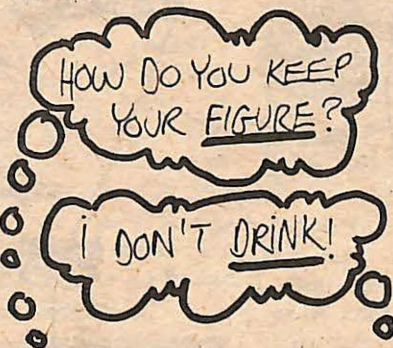 HOW DO YOU KEEP
YOUR FIGURE?
i DON'T DRiNK!